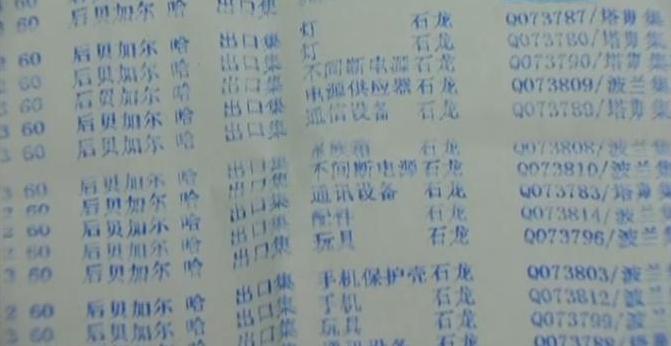 60 后贝加尔 哈 出口集 灯 石龙 Q073787/塔 集
2 60 后贝加尔 哈 出口集 灯 石龙 Q073780/塔 集
60 后贝加尔 哈 出口集 不间断电源 石龙 Q073790/塔 集
3 60 后贝加尔 哈 出口集 电源供应器 石龙 Q073809/波兰集
3 60 后贝加尔 哈 出口集 通信设备 石龙 Q073789/塔 集
石龙 Q073808/波兰集
3 60 后贝加尔 哈 出口集 不间断电源 石龙 Q073810/波兰集
2 60 后贝加尔 哈 出口集 通讯设备 石龙 Q073783/塔 集
2 60 后贝加尔 哈 出口集 配件 石龙 Q073814/波兰集
2 60 后贝加尔 哈 出口集 玩具 石龙 Q073796/波兰集
3 60 后贝加尔 哈 出口集 手机保护壳 石龙 Q073803/波兰
2 60 后贝加尔 哈 出口集 手机 石龙 Q073812/波兰
3 60 后贝加尔 哈 出口集 玩具 石龙 Q073799/波兰
通讯设备 石龙 Q073788/塔